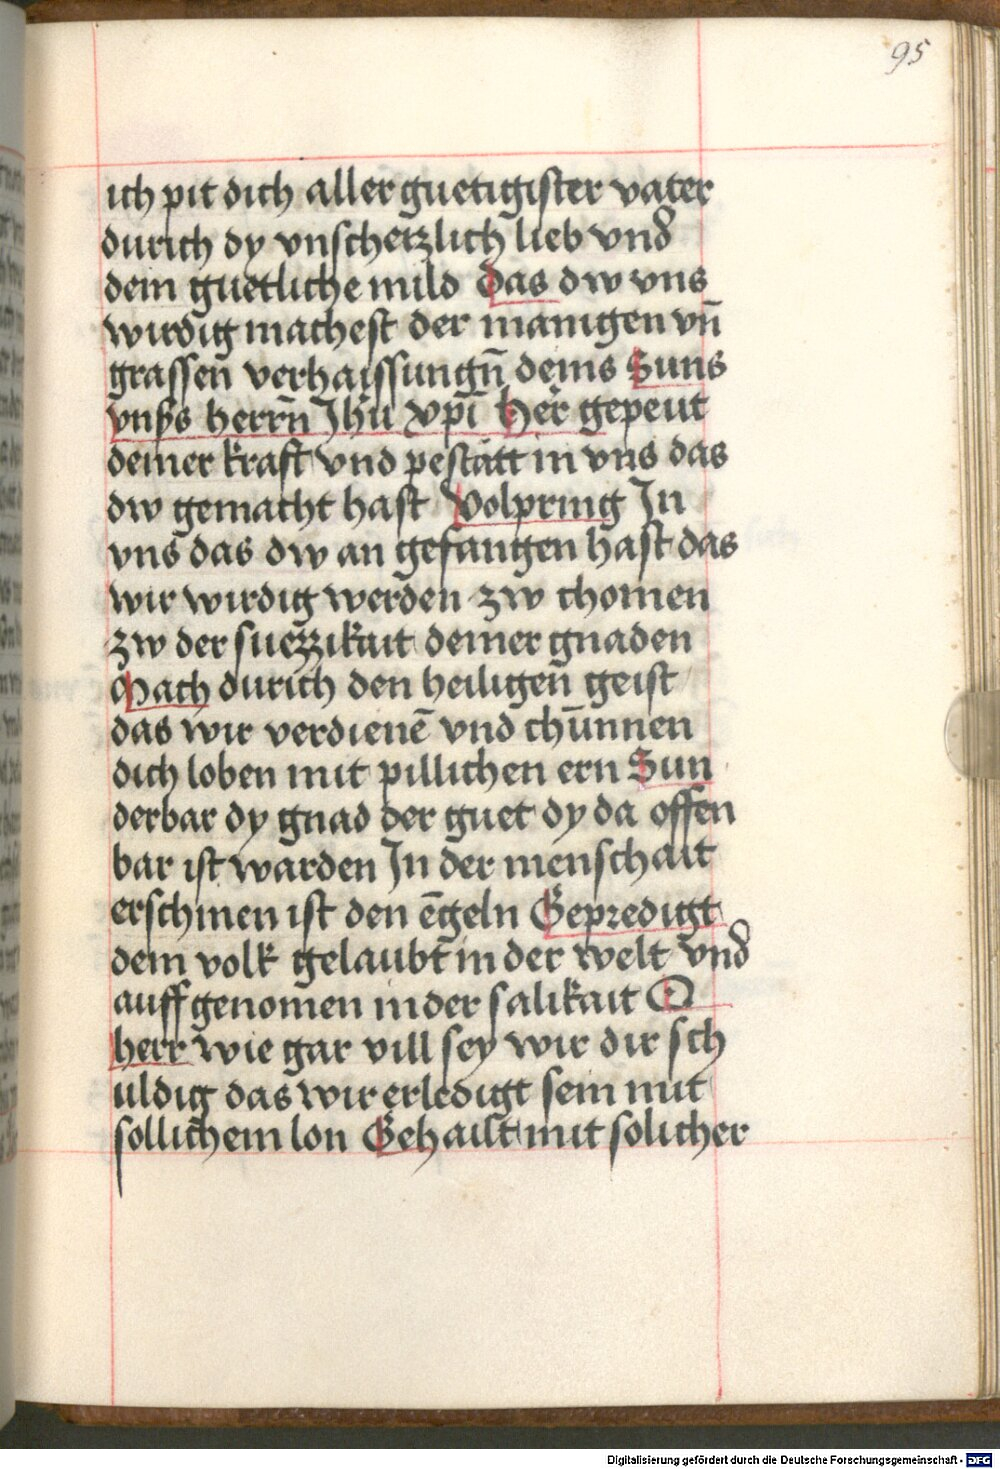 95
ich pit dich aller guetigister vater
durich dy vnscherzlich lieb vnd
dein guetliche mild das dw vns
wirdig machest der manigen vn̄
grassen verhaissungn̄ deins Suns
vnſſs herrn̄ Jhu xpī Her gepeut
deiner kraft vnd pestätt in vns das
dw gemacht hast Volpring Jn
vns das dw an gefangen hast das
wir wirdig werden zw chomen
zw der suezzikait deiner gnaden
Mach durich den heiligen̄ geist
das wir verdienē vnd chūnnen
dich loben mit pillichen ern Sun
derbar dy gnad der guet dy da offen
bar ist warden Jn der menschait
erschinen ist den ēgeln Gepredigt
dem volk gelaubt in der welt vnd
auff genomen in der salikait O
herr wie gar vill sey wir dir sch
uldig das wir erledigt sein mit
sollichem lon Gehailt mit solicher
Digitalisierung gefördert durch die Deutsche Forschungsgemeinschaft - DFG